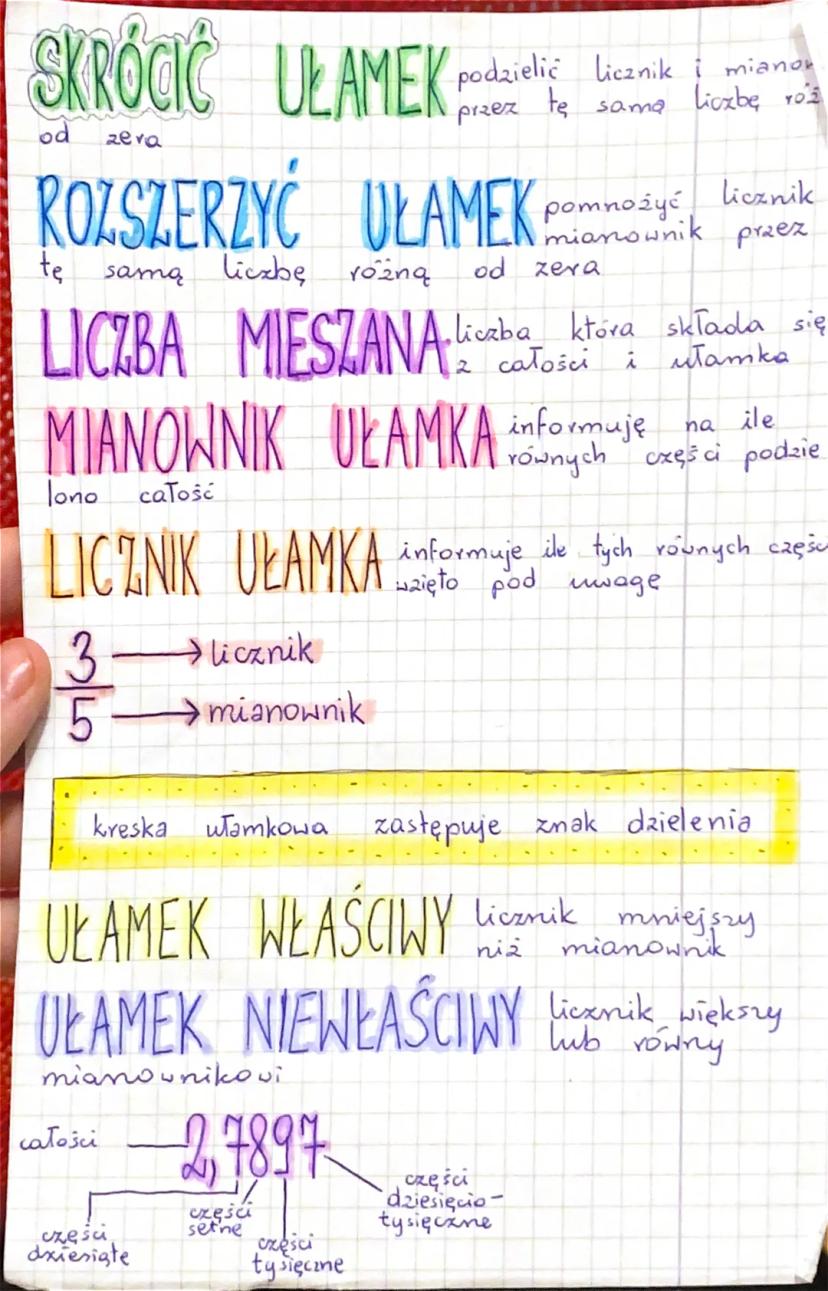 SKRÓCIĆ UŁAMEK podzielić licznik i mianow
przez tę samą liczbę róż
od zera
ROZSZERZYĆ UŁAMEK pomnożyć licznik
mianownik przez
tę samą liczbę różną od zera
LICZBA MIESZANA liczba która składa się
z całości i ułamka
MIANOWNIK UŁAMKA informuję na ile
równych części podzie
lono całość
LICZNIK UŁAMKA informuje ile tych równych częśc
wzięto pod uwagę
3 → licznik
5 → mianownik
kreska ułamkowa zastępuje znak dzielenia
UŁAMEK WŁAŚCIWY licznik mniejszy
niż mianownik
UŁAMEK NIEWŁAŚCIWY licznik większy
lub równy
mianownikowi
całości 2,7897
części dziesiąte
części setne
części tysięczne
części dziesięcio-
tysięczne